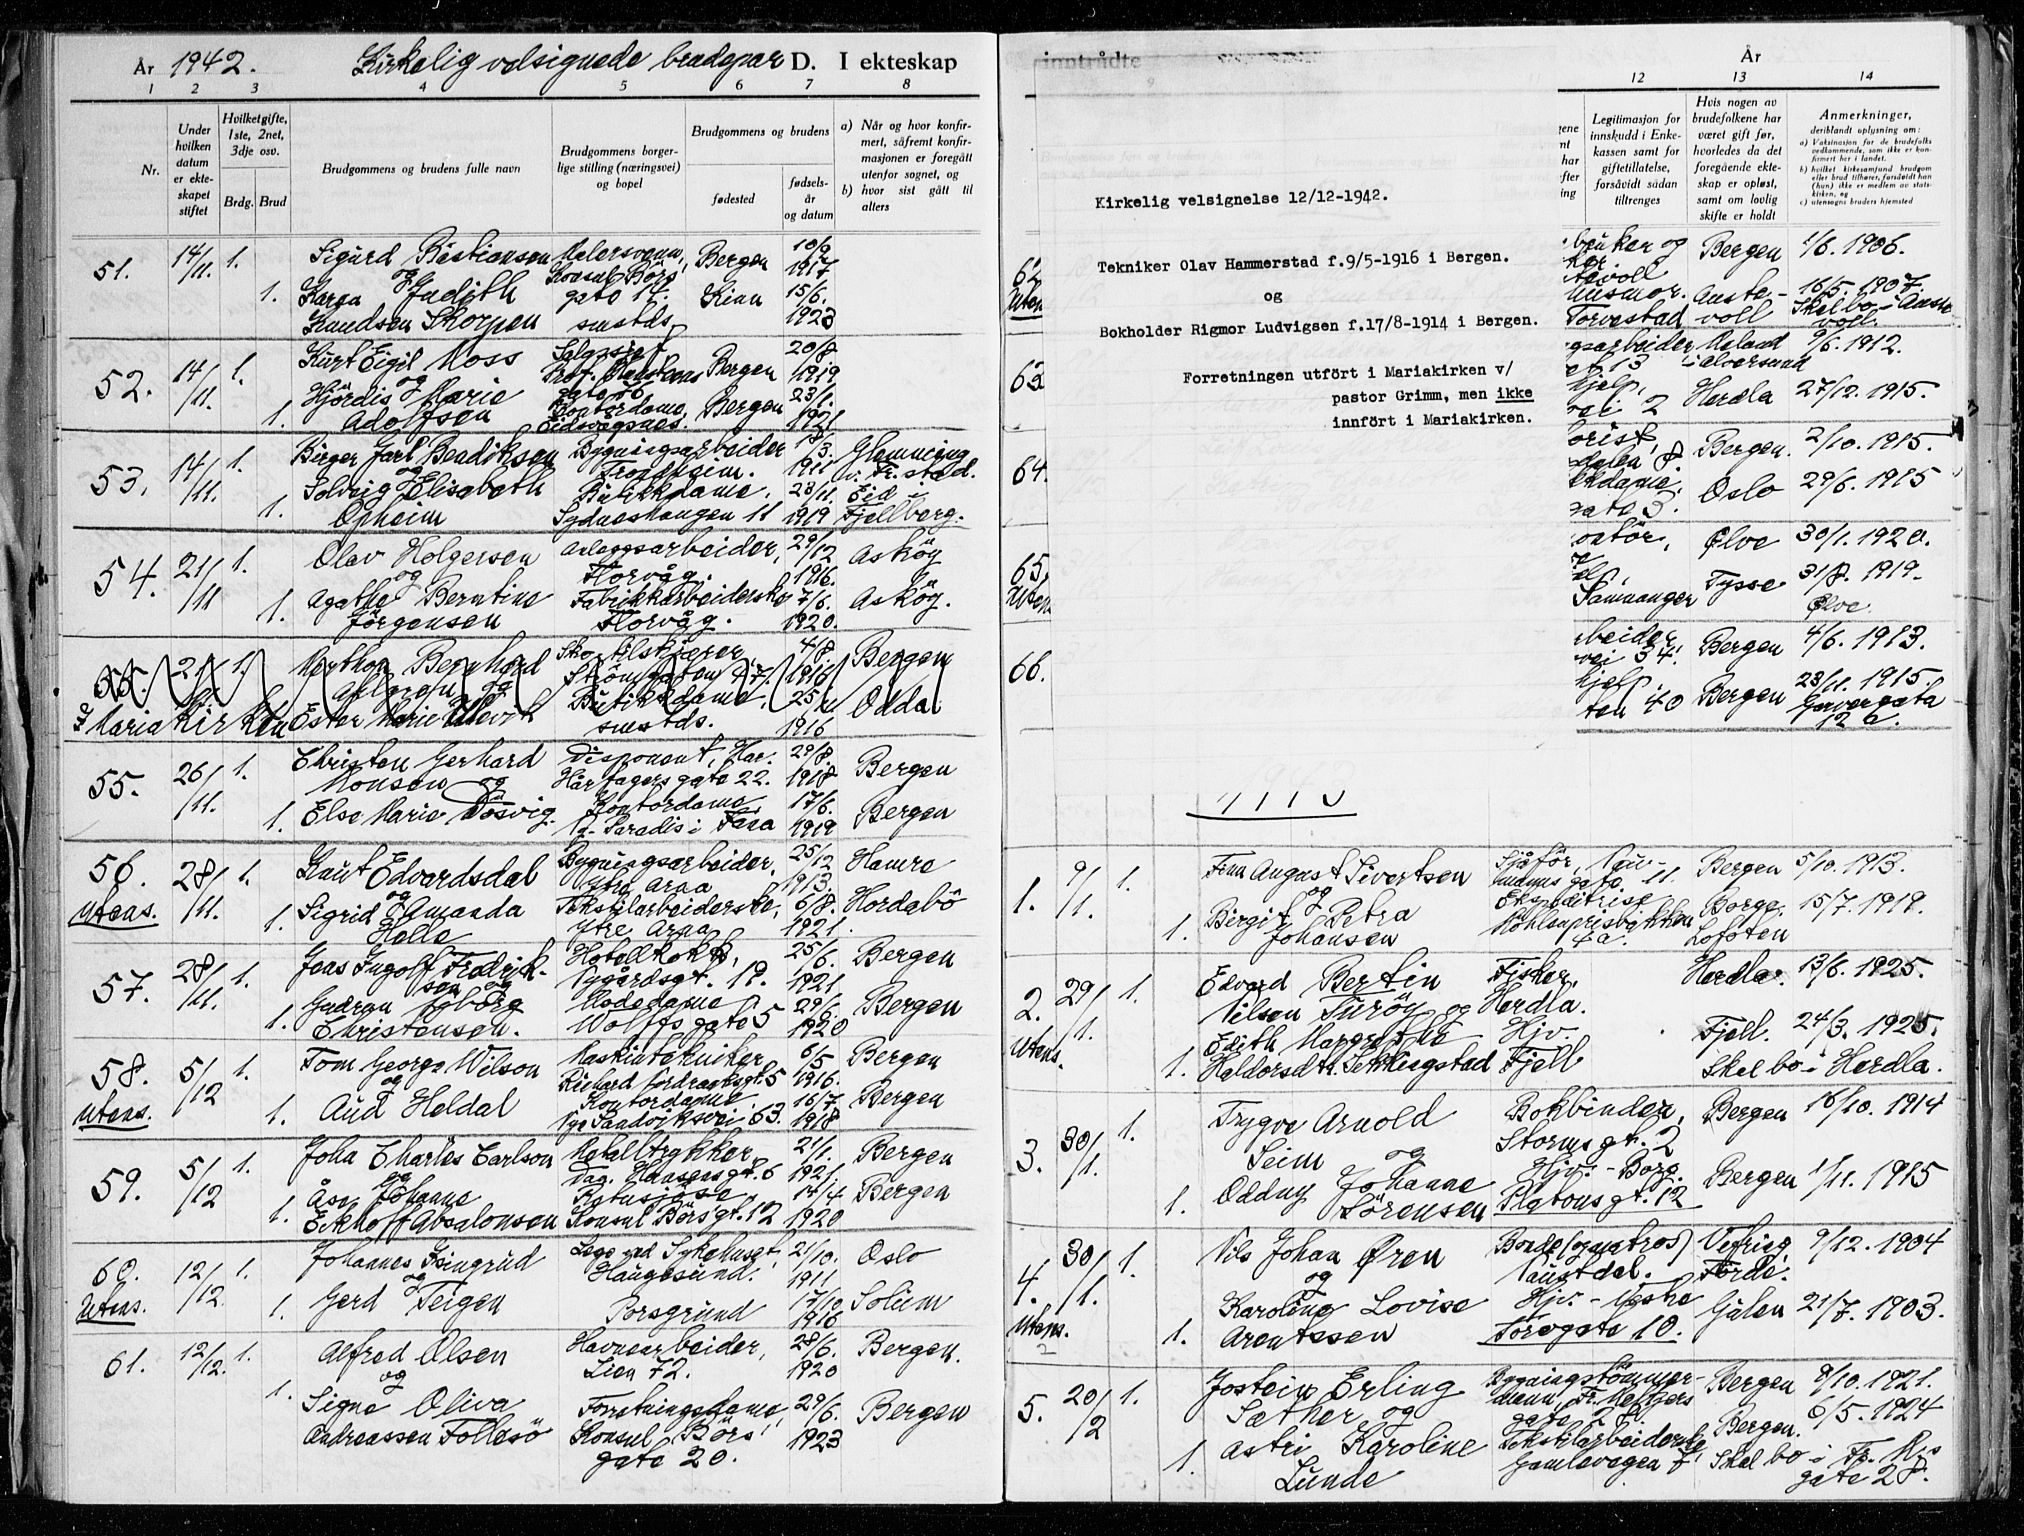 År 1942. Kirkelig velsignede brudepar D. I ekteskap
1 2 3 4 5 6 7 8
Nr.
Under hvilken datum er ekteskapet stiftet
Hvilketgifte, 1ste, 2net, 3dje osv.
Brdg. Brud
Brudgommens og brudens fulle navn
Brudgommens borgerlige stilling (næringsvei) og bopel
Brudgommens og brudens
fødested
fødselsår og datum
a) Når og hvor konfirmert, såfremt konfirmasjonen er foregått utenfor sognet, og
b) hvor sist gått til alters
51. 14/11. 1. Sigurd Bastiansen Malersvenn, Bergen 10/6 1917
og Konsul Börs
1. Karen Judith gate 14. Kinn 15/6. 1923
Knudsen Skorpen smstds.
52. 14/11. 1. Kurt Eigil Moss Bergen 20/8 1919
og
1. Hjördis Marie Kontordame, Bergen 23/1. 1921
Adolfsen Eidsvågsnes.
53. 14/11. 1. Birger Jarl Bendiksen Bygningsarbeider 1911 Glemming
og Trondheim. v. Fr.stad.
1. Solveig Elisabeth Butikkdame, 23/11. Eid
Opheim Sydneshaugen 11 1919 Fjellberg.
54. 21/11 1. Olav Holgersen Anleggsarbeider, 29/12 Asköy
og Florvåg. 1916.
1. Agathe Berntine Fabrikkarbeiderske 7/6. Asköy.
Jörgensen Florvåg. 1920.
55. 21/ 1. Bernhard Skotilskjærer 4/8 Bergen
og Strömgaten 1916
se Mariakirken Ester Marie Butikkdame, 25/ Oddal
smstds. 1916
55. 26/11. 1. Christen Gerhard Disponent, Har. 29/8. Bergen
Monsen og Hårfagers gate 22. 1918
1. Else Marie Døsvig. Kontordame, 17/6. Bergen
Paradis i Fana 1919
56. 28/11. 1. Knut Edvardsdal Bygningsarbeider, 25/12 Hamre
Utens. og Ytre Arna 1913.
1. Sigrid Amanda Tekstilarbeiderske, 6/8. Hordabö
Helle Ytre Arna 1921.
57. 28/11. 1. Jens Ingolf Fredrik- Hotellkokk, 25/6. Bergen
sen og Nygårdsgt. 1921
1. Gudrun Ingborg Modedame 29/6. Bergen
Christensen. Wolffs gate 5 1920
58. 5/12 1. Tom George Wilson Maskintekniker 6/5 Bergen
Utens. og Richard Nordraaksgt. 5 1916.
1. Aud Heldal Kontordame 16/7 Bergen
Nye Sandviksvei 63. 1918
59. 5/12 1. John Charles Carlson Metalltrykker 21/1. Bergen
og Dag. Hansensgt. 6 1921
1. Åse Johanne 14/4 Bergen
Eckhoff Absalonsen Konsul Börs gt. 12 1920
60. 12/12. 1. Johannes Isingrud Læge ved Sykehuset, 21/10. Oslo
Utens. og Haugesund. 1911
1. Gerd Teigen Porsgrund 17/10 Solum
1916
61. 12/12. 1. Alfred Olsen Havnearbeider, 28/6. Bergen.
og Lien 72. 1920
1. Signe Oliva Forretningsdame, 29/6. Bergen
Andreassen Follesö Konsul Börs' 1923
gate 20.
inntrådte År
9 12 13 14
Legitimasjon for innskudd i Enkekassen samt for giftetillatelse, forsåvidt sådan tiltrenges
Hvis nogen av brudefolkene har været gift før, hvorledes da det foregående ekteskap er opløst, samt om lovlig skifte er holdt
Anmerkninger,
deriblandt oplysning om:
a) Vaksinasjon for de brudefolks vedkommende, som ikke er konfirmert her i landet.
b) hvilket kirkesamfund brudgom eller brud tilhører, forsåvidt han (hun) ikke er medlem av statskirken, og
c) utensogns bruders hjemsted
Kirkelig velsignelse 12/12-1942.
Tekniker Olav Hammerstad f.9/5-1916 i Bergen.
og
Bokholder Rigmor Ludvigsen f.17/8-1914 i Bergen.
Forretningen utfört i Mariakirken v/
pastor Grimm, men ikke
innfört i Mariakirken.
62 bruker og Bergen 1/6. 1906.
Utens
husmor. Auste- 16/5. 1907.
Torvestad voll Skel bo i Auste-
voll.
63 gsarbeider Meland 9/6. 1912.
i Alversund
hjelp, Herdla 27/12. 1915.
vei 2
64. Bergen. 2/10. 1915.
kdame, Oslo 29/6. 1915
gate 3.
65. ontör, Ølve 30/1. 1920.
Utens
Tysse 31/8. 1919.
Samnanger Ølve.
66. rbeider Bergen 4/6. 1913.
vei 34.
hjelp Bergen 23/11. 1915.
ten 40 Garvergata
12 a.
1. 9/1. 1. Finn August Sivertsen Sjåför, Neu- Bergen 5/10. 1913.
og manns gate. 11.
1. Birgit Petra Ekspeditrise Borge, 15/7. 1919.
Johansen Möhlenprisbakken Lofoten
4a.
2. 29/1. 1. Edvard Bertin Fisker, Herdla. 13/6. 1925.
Utens. Nilsen Turöy og Herdla.
Edith Margrethe Hjv. Fjell. 24/3. 1925.
1. Haldorsdtr. Sekkingstad Fjell Skel bo i Herdla.
3. 30/1. 1. Trygve Arnold Bokbinder, Bergen 16/10. 1914
Seim og Stormsgt. 2
1. Oddny Johanne Hjv. - Borg. Bergen 1/11. 1915
Sörensen Platousgt. 12
4. 30/1. 1. Nils Johan Øren Bonde (og matros) Vefring 9/12. 1904
Utens. og Naustdal. Förde.
2 Karoline Lovise Hjv. - Gjalen 21/7. 1903.
1. Arentssen Torvgate 10.
5. 20/2 1. Jostein Erling Bygningstömmer- Bergen 9/10. 1921.
Sæther og mann, Fr. Meltzers
gate 28. Bergen. 6/5. 1924
1. Astri Karoline Tekstilarbeiderske
Lunde Gamlevegen 7 Skel bo i Fr. M's
gate 28.